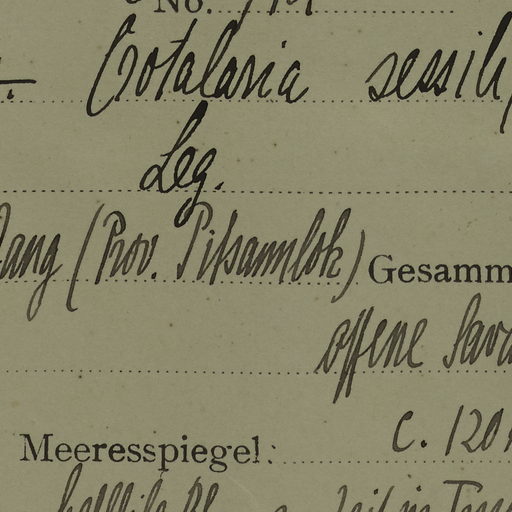 No.
Crotalaria sessili
Leg.
ang (Prov. Pitsannlok) Gesamm
offene Sava
Meeresspiegel: c. 120